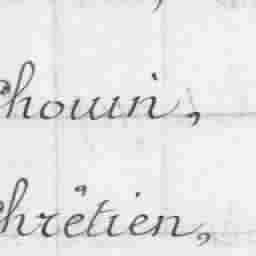 Chouin,
Chrêtien,